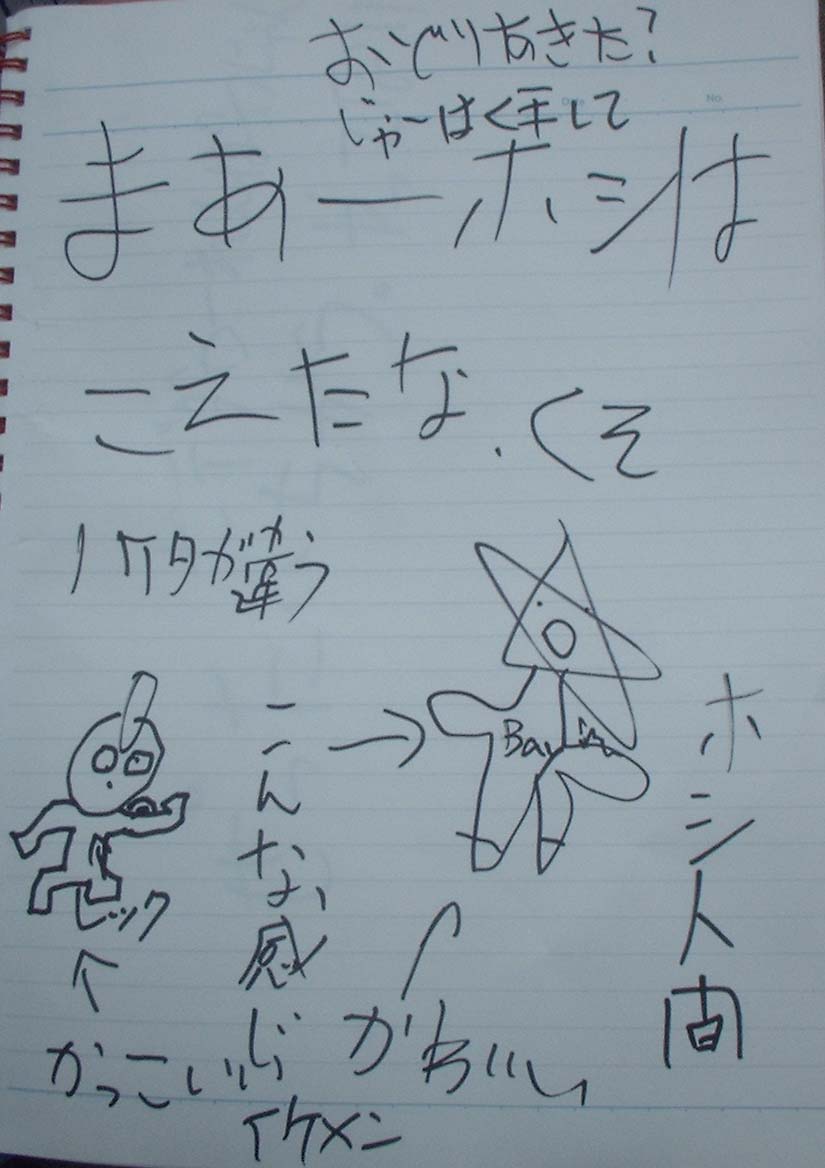 おどりあきた?
じゃーはく手して
まあーホシは
こえたな.くそ
ケタが違う
こんな感じ
ホシ人間
レック
かっこいい
かわいい
イケメン